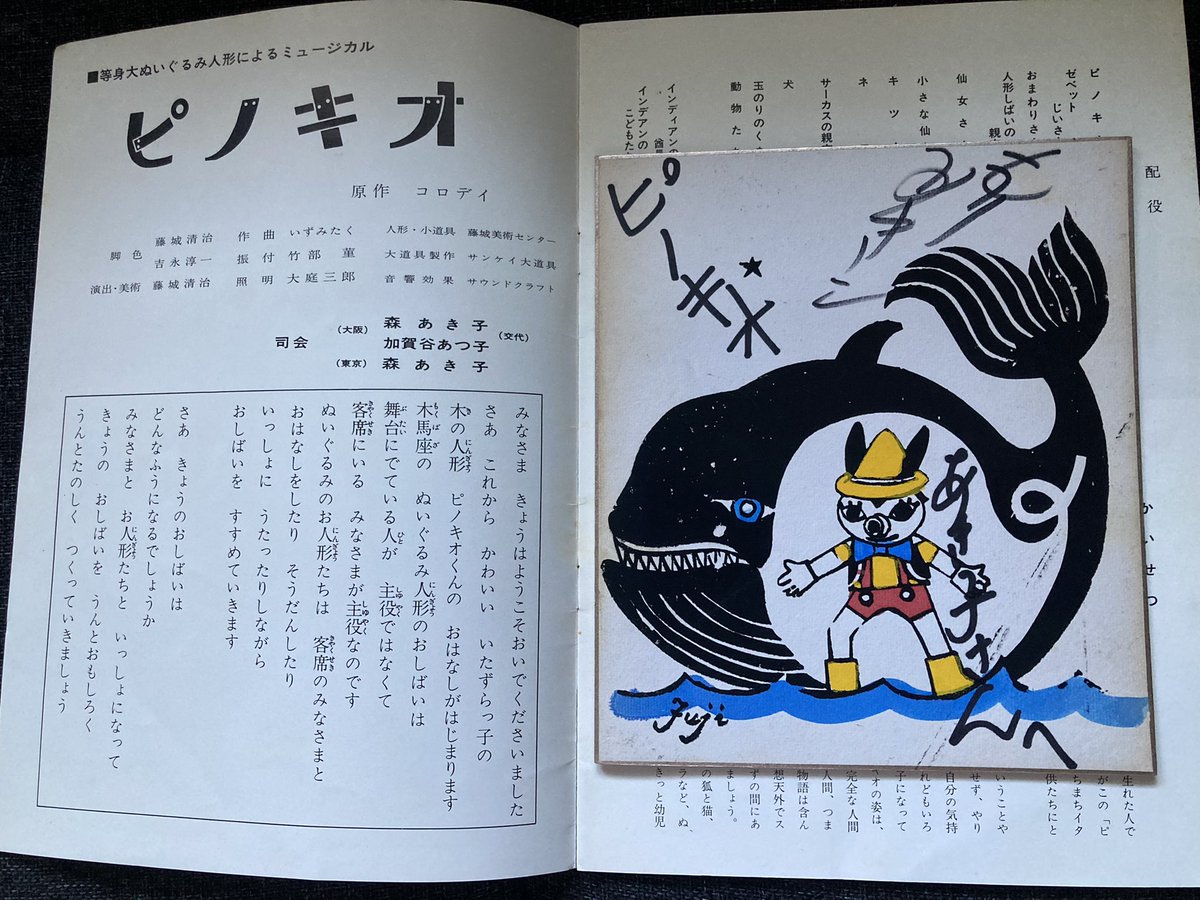 ■等身大ぬいぐるみ人形によるミュージカル
ピノキオ
原作 コロデイ
脚色 藤城清治 吉永淳一
作曲 いずみたく
人形・小道具 藤城美術センター
振付 竹部菫
大道具製作 サンケイ大道具
演出・美術 藤城清治
照明 大庭三郎
音響効果 サウンドクラフト
司会
(大阪) 森あき子
加賀谷あつ子 (交代)
(東京) 森あき子
みなさま きょうはようこそおいでくださいました
さあ これから かわいい いたずらっ子の
木の人形 ピノキオくんの おはなしがはじまります
木馬座の ぬいぐるみ人形のおしばいは
舞台にでている人が 主役ではなくて
客席にいる みなさまが主役なのです
ぬいぐるみのお人形たちは 客席のみなさまと
おはなしをしたり そうだんしたり
いっしょに うたったりしながら
おしばいを すすめていきます
さあ きょうのおしばいは
どんなふうになるでしょうか
みなさまと お人形たちと いっしょになって
きょうの おしばいを うんとおもしろく
うんとたのしく つくっていきましょう
配役
ピノキ
ゼペットじいさ
おまわりさ
人形しばいの親
仙女さ
小さな仙
キツ
ネ
サーカスの親
犬
玉のりのく
動物た
インディアンの酋
インデアンの
こどもた
ピーキオ
あき子さんへ
Fuji
かいせつ
生れた人で
がこの「ピ
ちまちイタ
供たちにと
いうことや
せず、やり
自分の気持
れどもいろ
子になって
オの姿は、
完全な人間
人間、つま
物語は含ん
想天外でス
ずの間にあ
ましょう。
の狐と猫、
ラなど、ぬ
きっと幼児